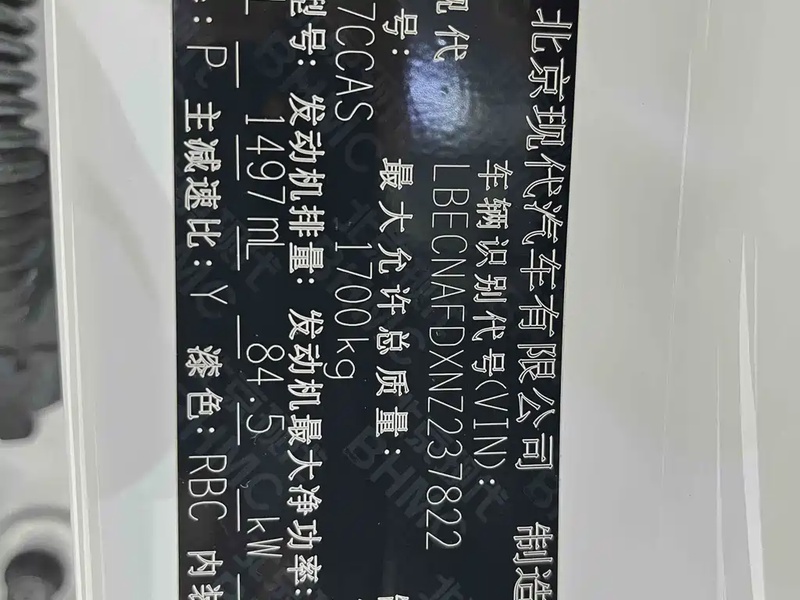 北京现代汽车有限公司 制造
现代 车辆识别代号(VIN):
LBECNAFDXNZ237822
号: 最大允许总质量:
7CCAS 1700kg
型号: 发动机排量: 发动机最大净功率:
1497mL 84.5 kW
: P 主减速比: Y 漆色: RBC 内装